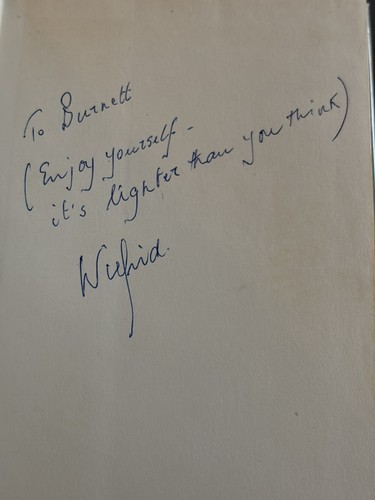 To Burnett
(Enjoy yourself -
it's lighter than you think)
Wilfrid.